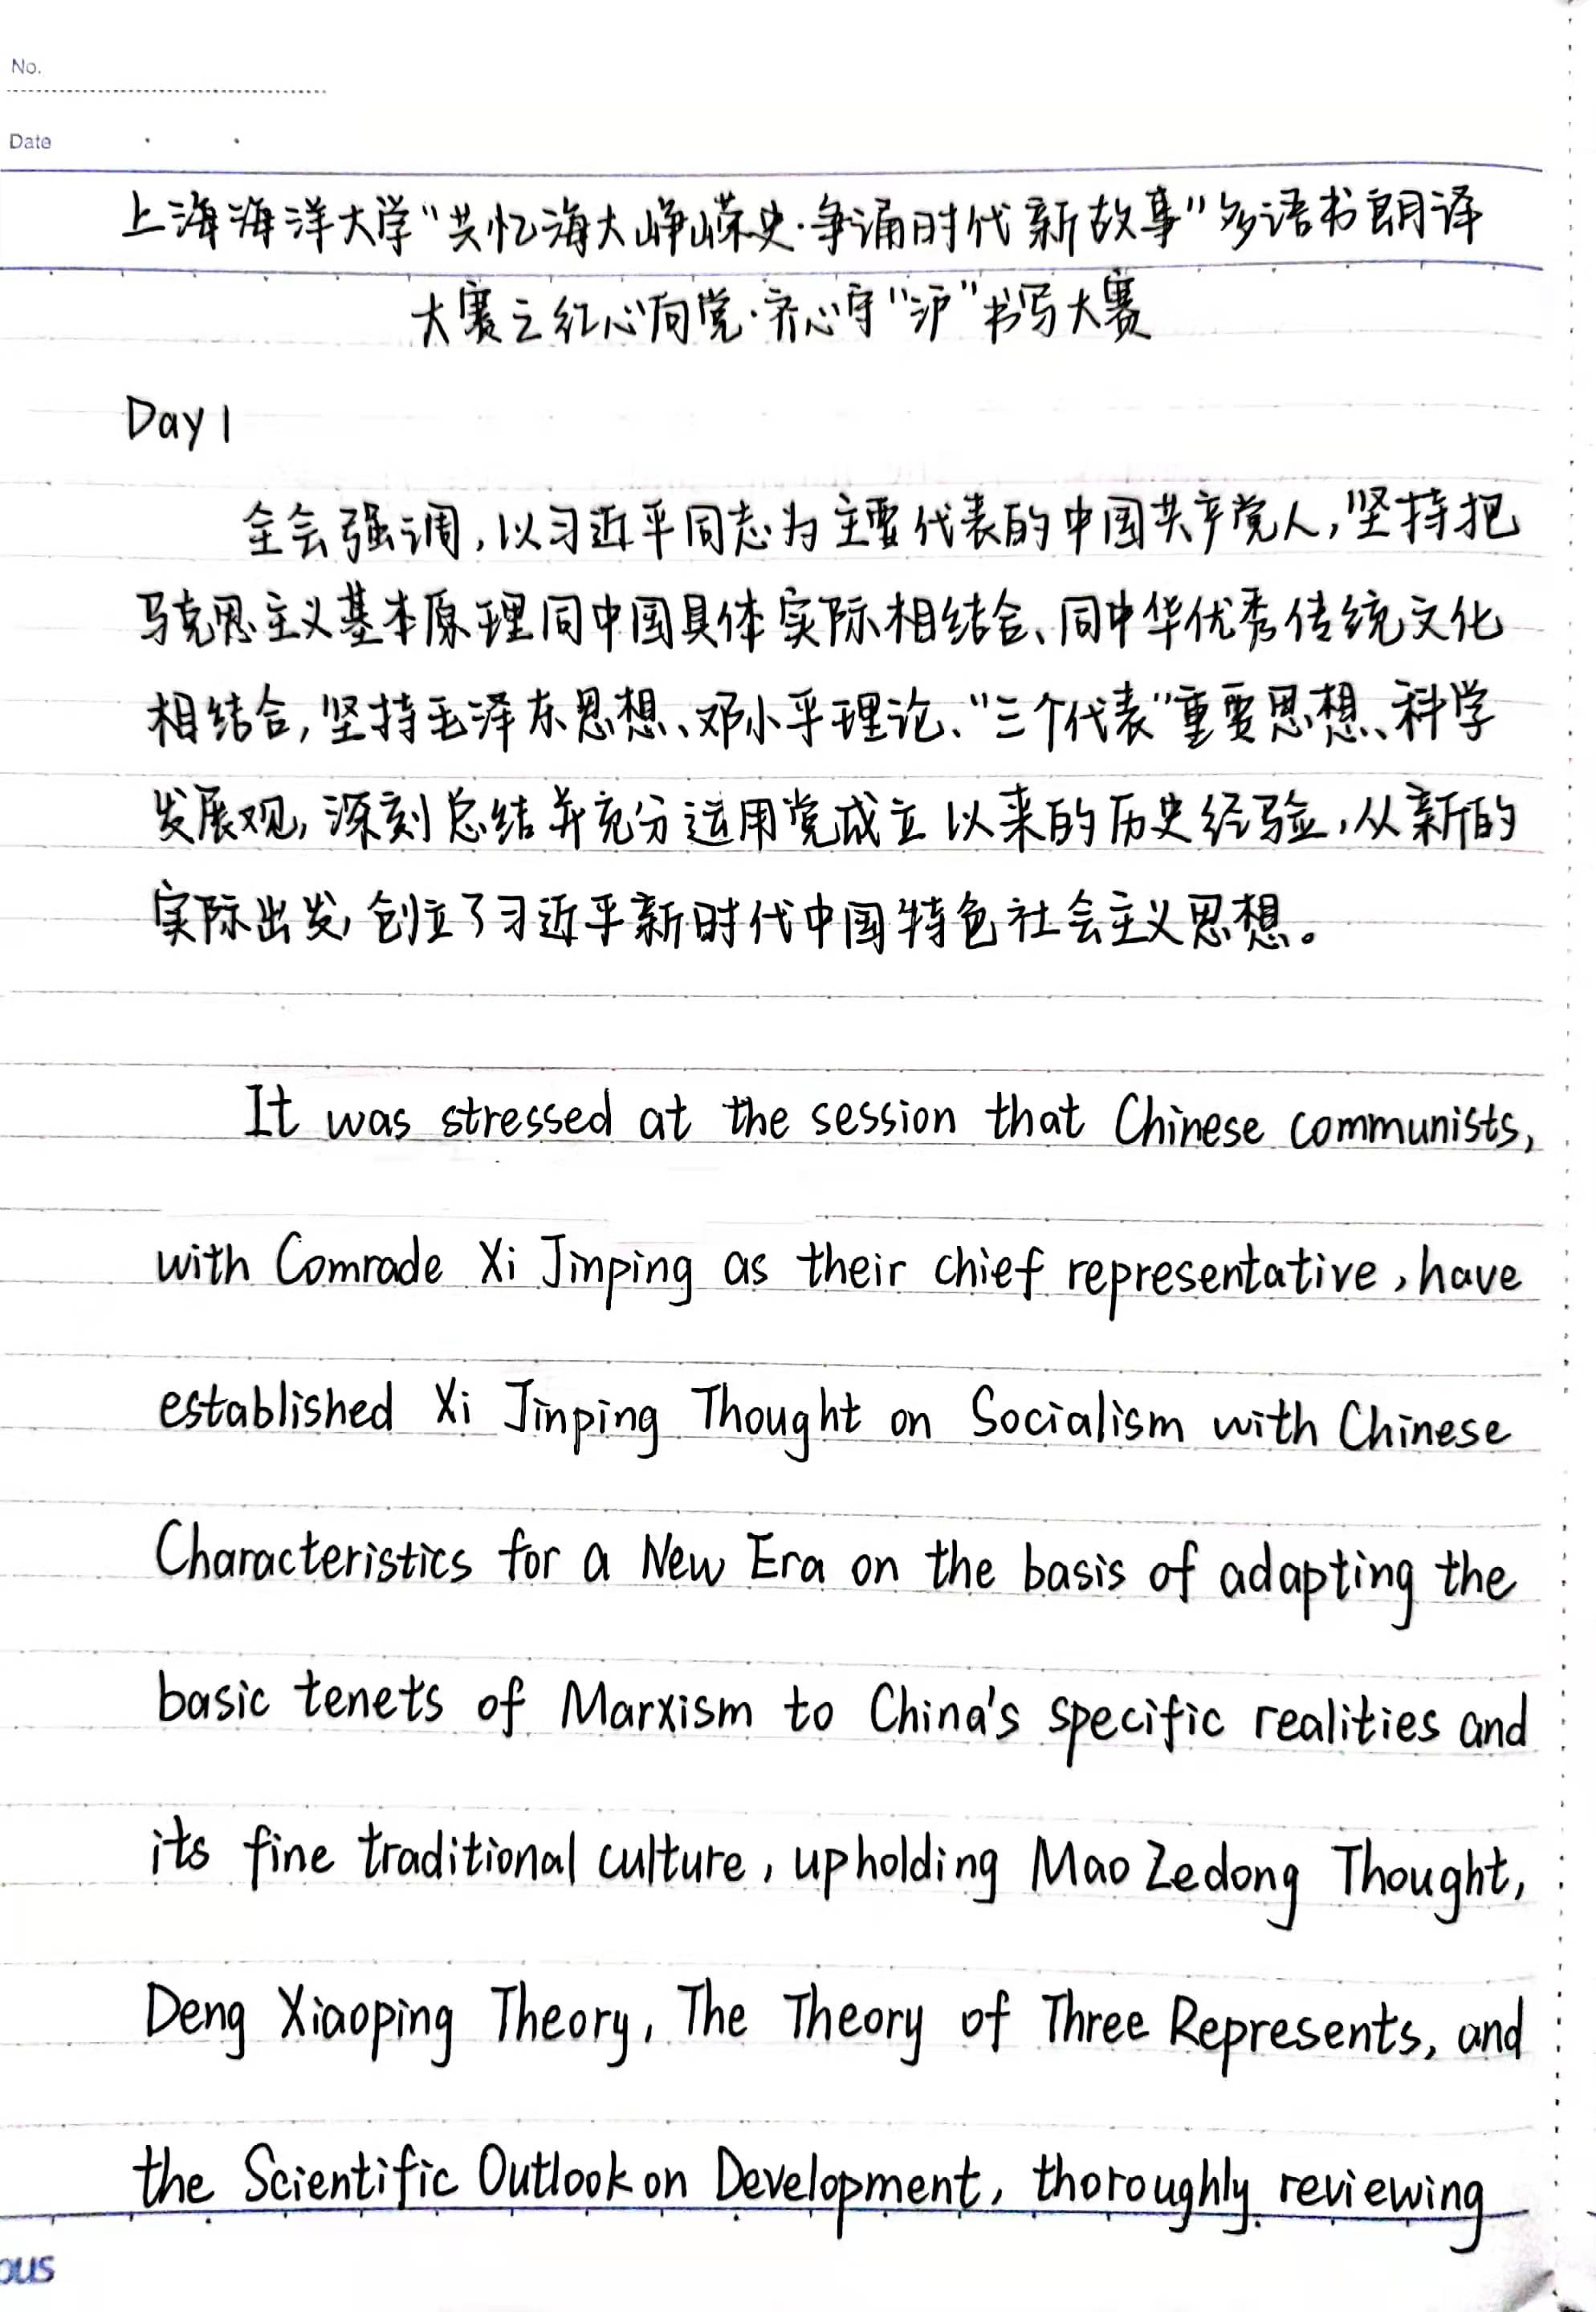 No.
Date
上海海洋大学“共忆海大峥嵘史·争诵时代新故事”多语书朗译
大赛之红心向党·齐心守“沪”书写大赛
Day 1
全会强调,以习近平同志为主要代表的中国共产党人,坚持把
马克思主义基本原理同中国具体实际相结合、同中华优秀传统文化
相结合,坚持毛泽东思想、邓小平理论、“三个代表”重要思想、科学
发展观,深刻总结并充分运用党成立以来的历史经验,从新的
实际出发,创立了习近平新时代中国特色社会主义思想。
It was stressed at the session that Chinese communists,
with Comrade Xi Jinping as their chief representative, have
established Xi Jinping Thought on Socialism with Chinese
Characteristics for a New Era on the basis of adapting the
basic tenets of Marxism to China's specific realities and
its fine traditional culture, upholding Mao Zedong Thought,
Deng Xiaoping Theory, The Theory of Three Represents, and
the Scientific Outlook on Development, thoroughly reviewing
ous